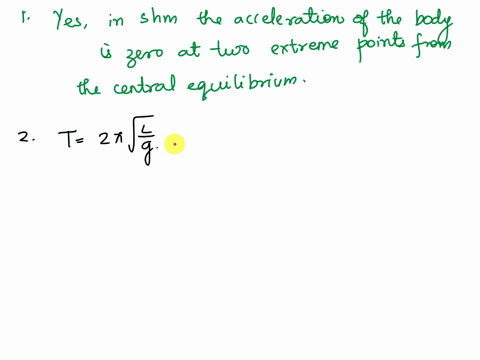 1. Yes, in shm the acceleration of the body
is zero at two extreme points from
the central equilibrium.
2. T = 2π√(L/g).